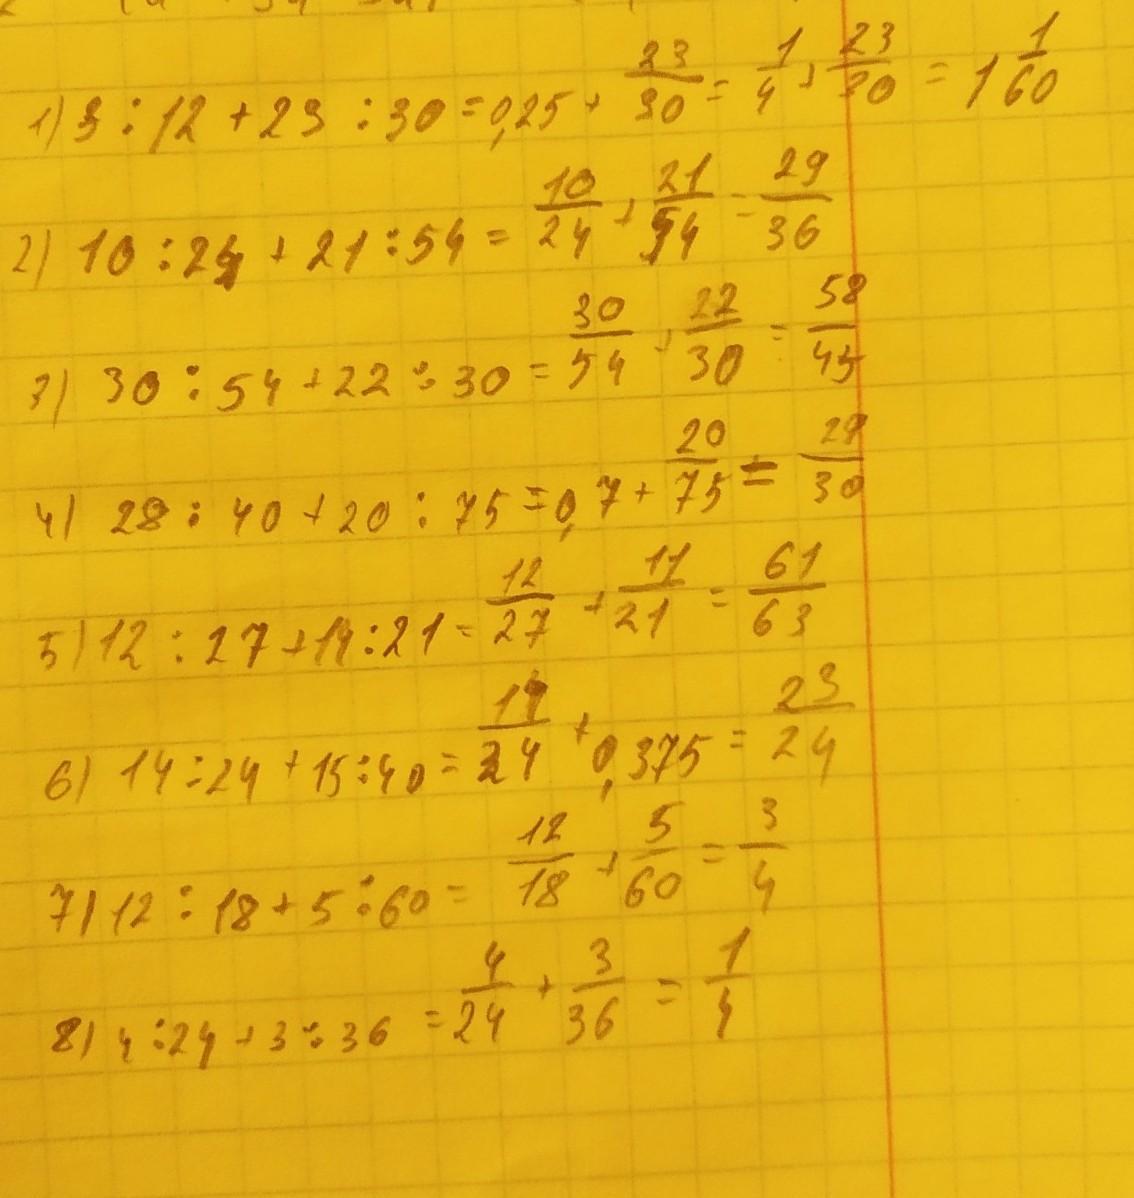 1) 3 : 12 + 23 : 30 = 0,25 + 23/30 = 1/4 + 23/30 = 1 1/60
2) 10 : 24 + 21 : 54 = 10/24 + 21/54 = 29/36
3) 30 : 54 + 22 : 30 = 30/54 + 22/30 = 58/45
4) 28 : 40 + 20 : 75 = 0,7 + 20/75 = 29/30
5) 12 : 27 + 11 : 21 = 12/27 + 11/21 = 61/63
6) 14 : 24 + 15 : 40 = 14/24 + 0,375 = 23/24
7) 12 : 18 + 5 : 60 = 12/18 + 5/60 = 3/4
8) 4 : 24 + 3 : 36 = 4/24 + 3/36 = 1/4